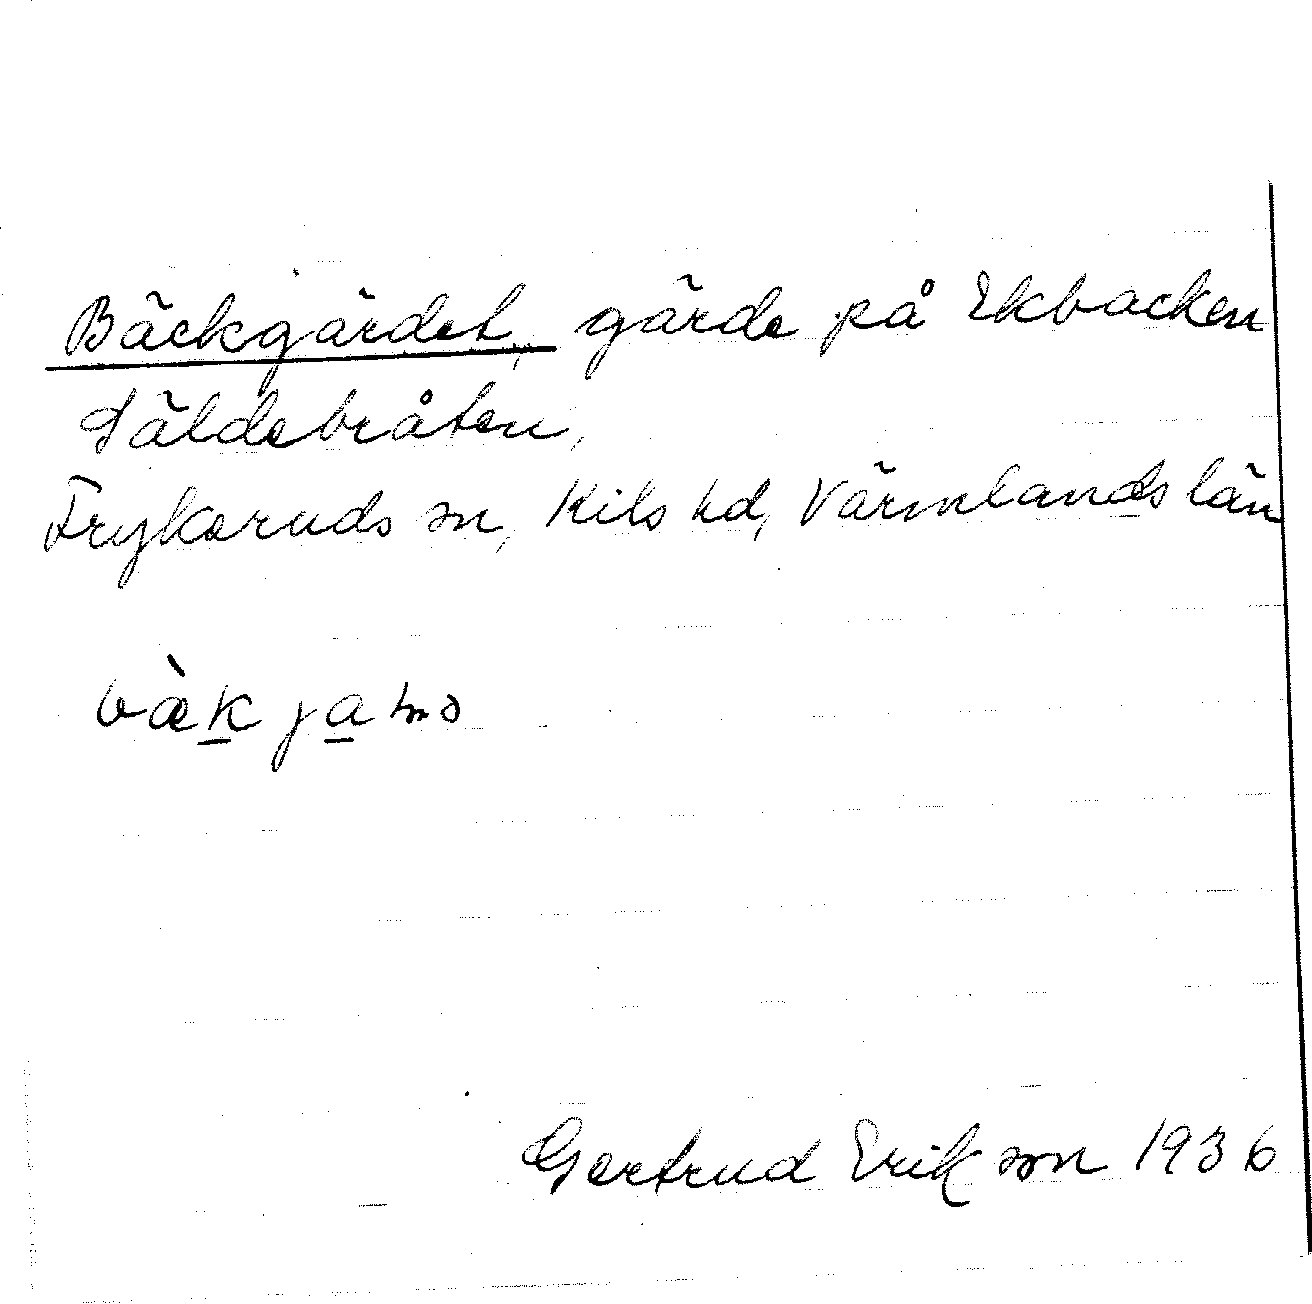 Bäckgärdet, gärde på Ekbacken
Säldebråten,
Frykeruds sn, Kils hd, Värmlands län
Gertrud Erikson 1936